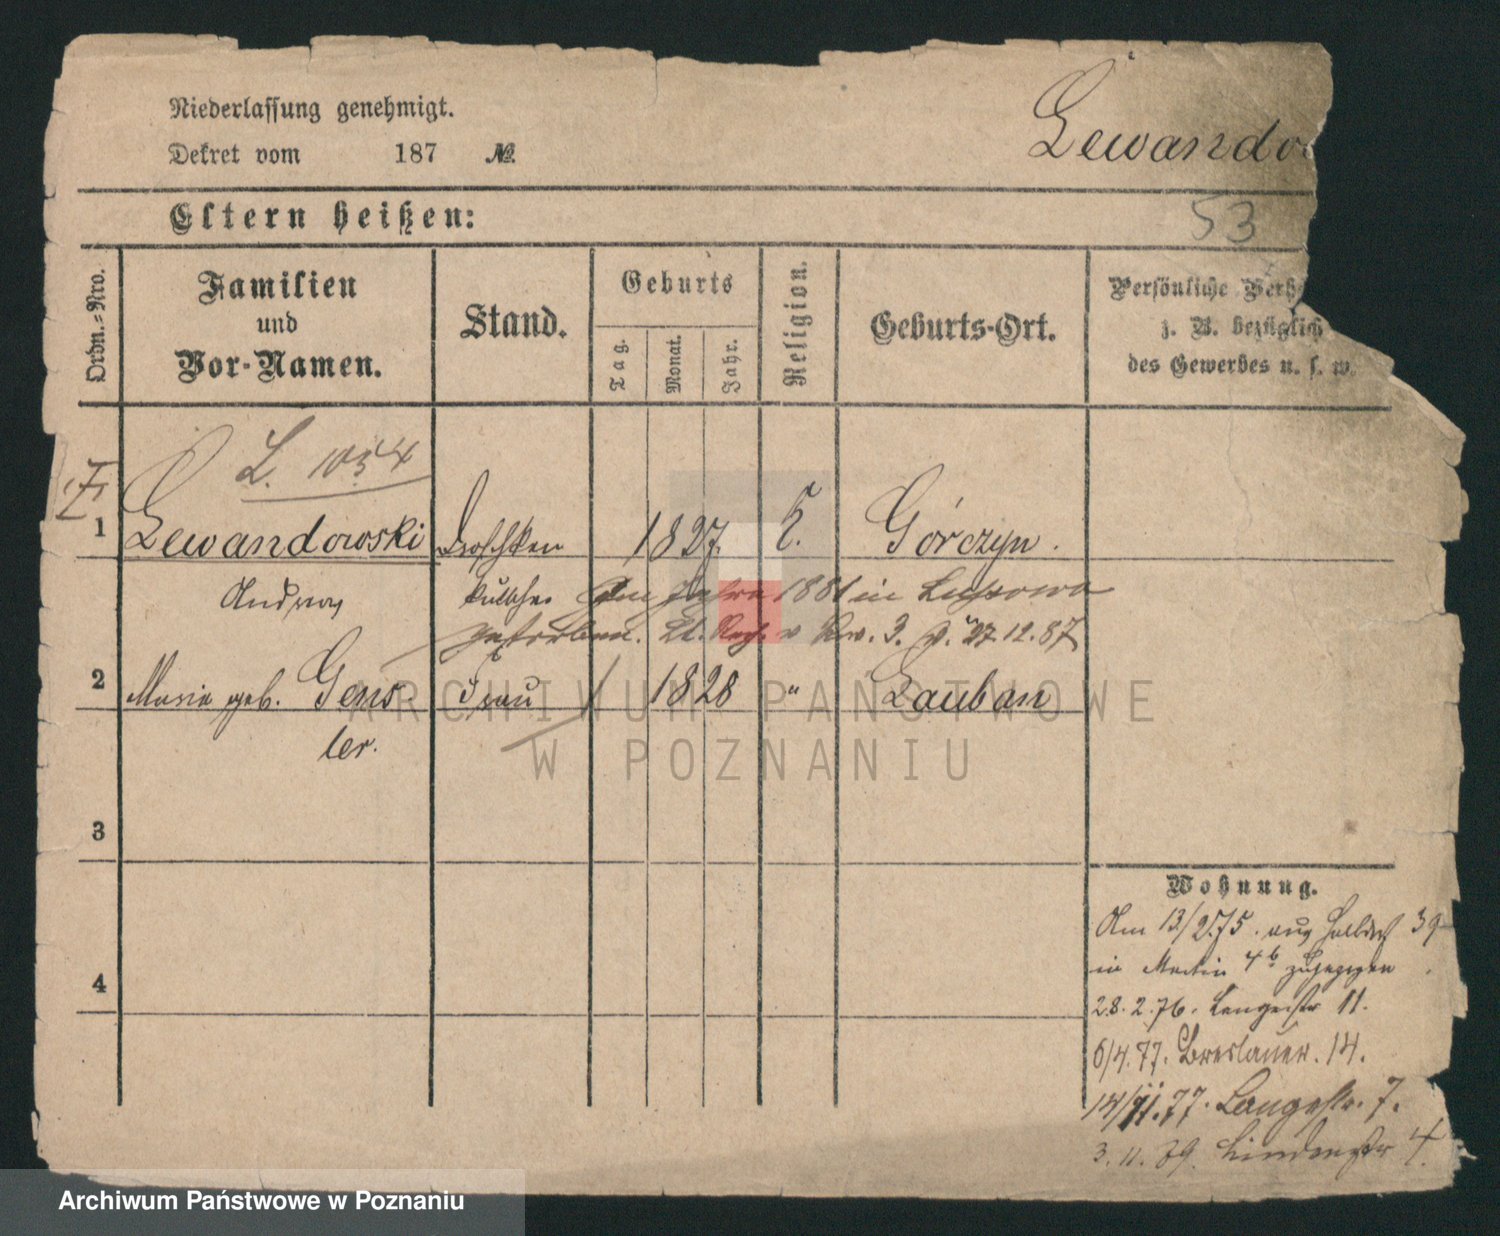 Niederlassung genehmigt.
Dekret vom 187 №
Lewando
Eltern heißen:
53
Ordn.=Nro.
Familien
und
Vor-Namen.
Stand.
Geburts
Tag.
Monat.
Jahr.
Religion.
Geburts-Ort.
Persönliche Verh
z. B. bezüglich
des Gewerbes u. s. w.
L. 1054
1 Lewandowski Droschken 1827. k. Górczyn.
Andreas kutscher Im Jahre 1881 in Lussowo
gestorben. Lt. v 3. 27.12.87
2 Maria geb. Gens Frau 1828 " Lauban
ler.
3
4
Wohnung.
Am 13/2.75. aus Halbdf 39
in Martin 4b zugezogen
28.2.76. Langestr 11.
6/4.77. Breslauer. 14.
14/11.77. Langestr. 7.
3.11.79. Lindenstr 4.
ARCHIWUM PAŃSTWOWE
W POZNANIU
Archiwum Państwowe w Poznaniu